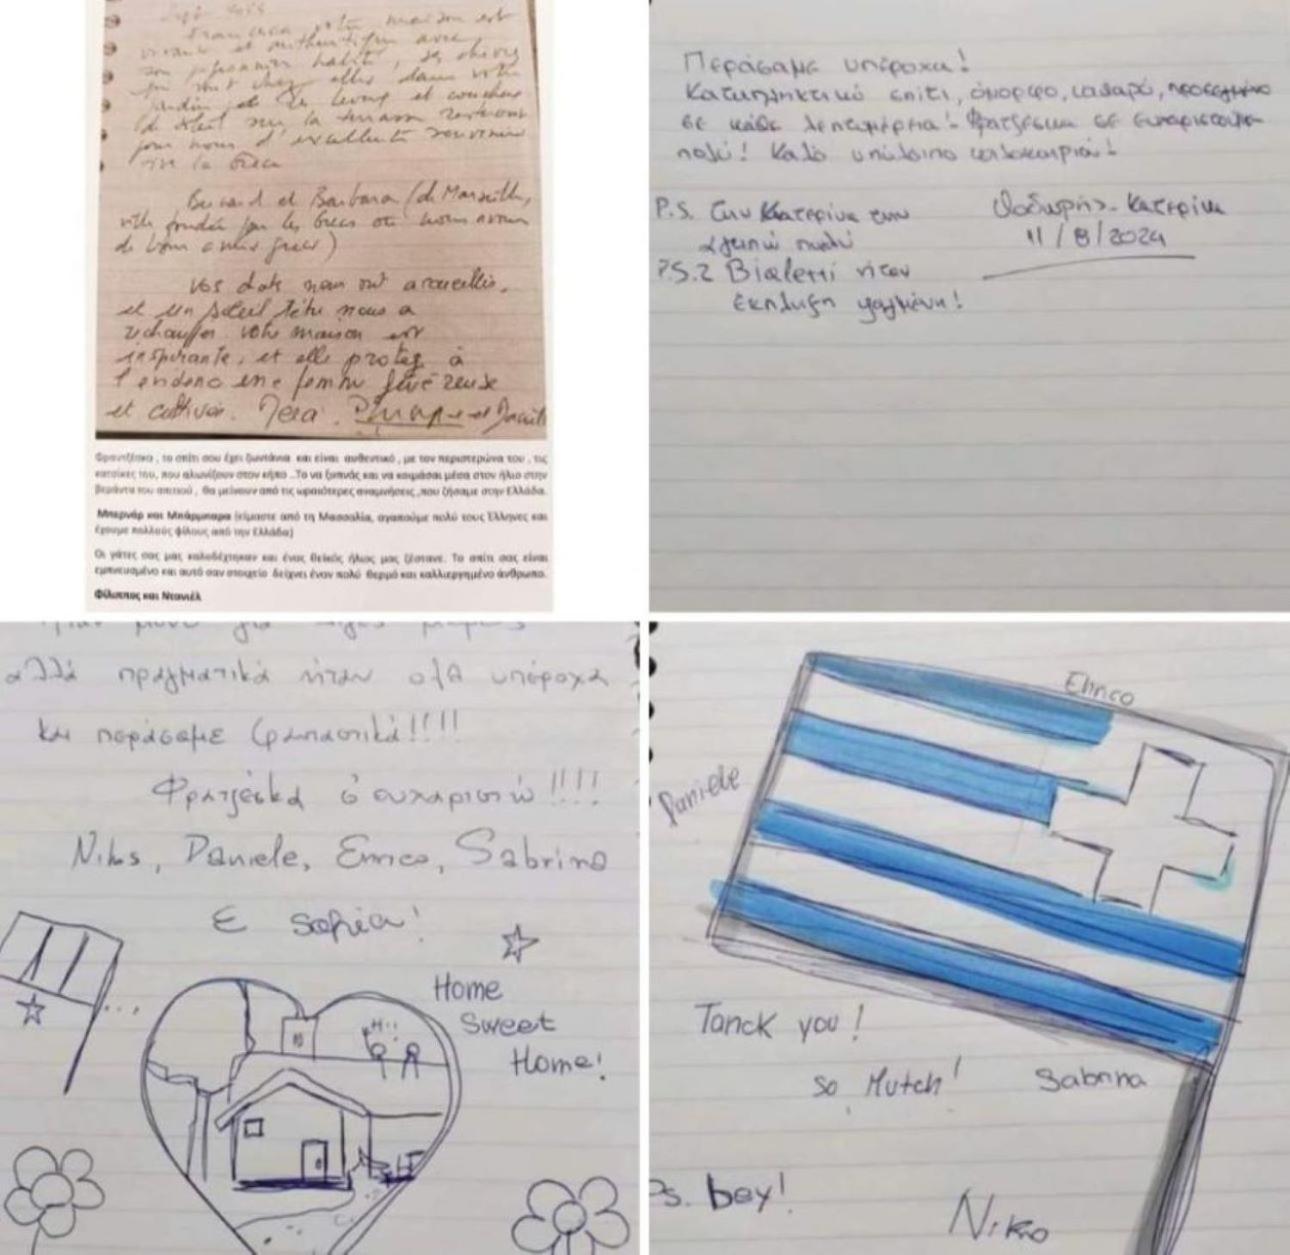 votre maison est
vivante et authentique avec
son pigeonnier
jardin et le lever et coucher
de soleil sur la terrasse resteront
pour nous d'excellents souvenirs
vive la Grèce
Bernard et Barbara (de Marseille,
ville fondée par les Grecs où nous avons
de bons amis grecs)
Vos chats nous ont accueillis.
et un soleil têtu nous a
réchauffés. votre maison est
inspirante, et elle protège à
une femme généreuse
et cultivée.
Φραντζέσκα , το σπίτι σου έχει ζωντάνια και είναι αυθεντικό , με τον περιστερώνα του , τις
κατσίκες του, που αλωνίζουν στον κήπο ..Το να ξυπνάς και να κοιμάσαι μέσα στον ήλιο στην
βεράντα του σπιτιού , θα μείνουν από τις ωραιότερες αναμνήσεις ,που ζήσαμε στην Ελλάδα.
Μπερνάρ και Μπάρμπαρα (είμαστε από τη Μασσαλία, αγαπούμε πολύ τους Έλληνες και
έχουμε πολλούς φίλους από την Ελλάδα)
Οι γάτες σας μας καλοδέχτηκαν και ένας θεϊκός ήλιος μας ζέστανε. Το σπίτι σας είναι
εμπνευσμένο και αυτό σαν στοιχείο δείχνει έναν πολύ θερμό και καλλιεργημένο άνθρωπο.
Φίλιππος και Ντανιέλ
Περάσαμε υπέροχα!
Καταπληκτικό σπίτι, όμορφο, καθαρό, προσεγμένο
σε κάθε λεπτομέρεια! Φρατζέσκα σε ευχαριστούμε
πολύ! Καλό υπόλοιπο καλοκαιριού!
Θοδωρής - Κατερίνα
11/8/2024
P.S. Την Κατερίνα την
αγαπώ πολύ
P.S.2 Bialetti ήταν
έκπληξη ψαγμένη!
Ήταν μόνο για λίγες μέρες
αλλά πραγματικά ήταν όλα υπέροχα
και περάσαμε φανταστικά!!!!
Φρατζέσκα σ ευχαριστώ!!!!
Nikos, Daniele, Enrico, Sabrina
E Sofia!
Home
Sweet
Home!
Hi!
Enrico
Daniele
Tanck you!
So Mutch!
Sabrina
Ps. bey!
Niko